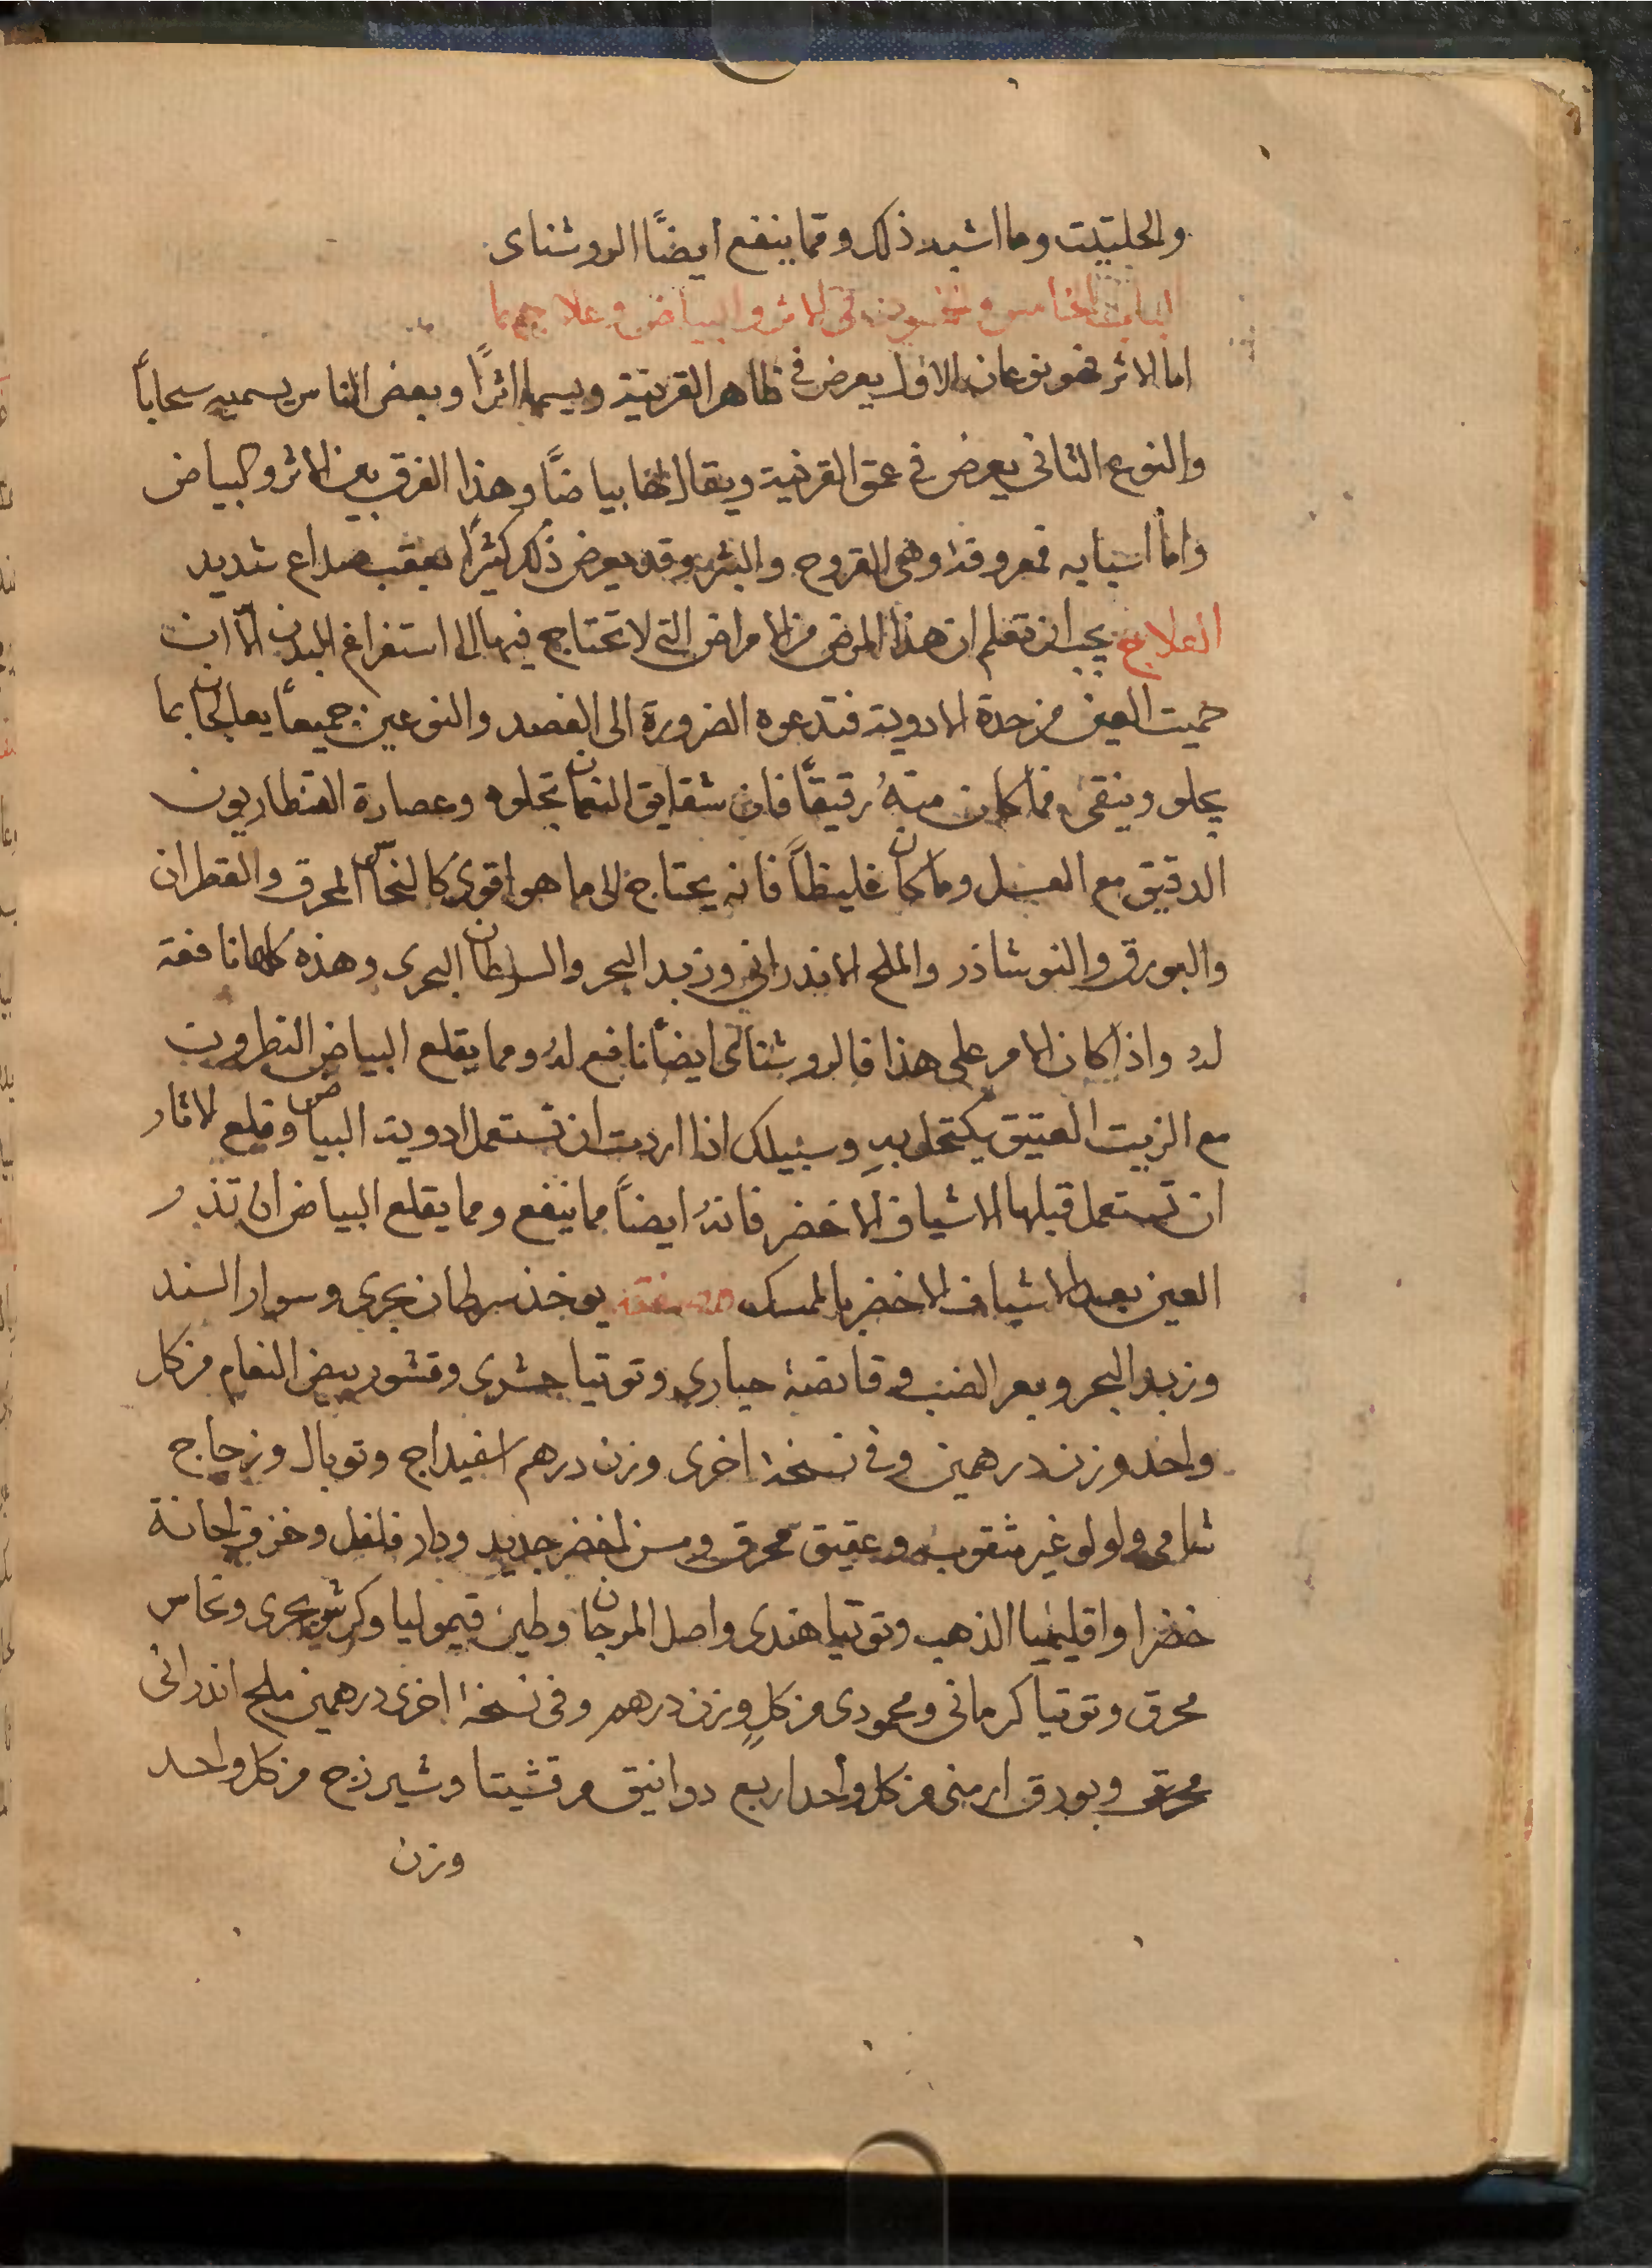 والحلتيت وما اشبه ذلك ومما ينفع ايضًا الروشناى
الباب الخامس والخمسون فى الاثر والبياض وعلاجهما
اما الاثر فهو نوعان الاول يعرض فى ظاهر القرنية ويسمى اثرًا وبعض الناس يسميه سحاباً
والنوع الثانى يعرض فى عمق القرنية ويقال لها بياضًا وهذا الفرق بين الاثر والبياض
واما اسبابه فمعروفة وهى القروح والبثر وقد يعرض ذلك كثيرًا بعقب صداع شديد
العلاج يجب ان تعلم ان هذا المرض من الامراض التى لا تحتاج فيها الى استفراغ البدن الّا ان
حميت العين من حدة الادوية فتدعوه الضرورة الى الفصد والنوعين جميعاً يعالجان بما
يجلو وينقى فما كان منهُ رقيقًا فان شقايق النعمان تجلوه وعصارة القنطاريون
الدقيق مع العسل وما كان غليظاً فانه يحتاج الى ما هو اقوى كالنحاس المحرق والقطران
والبورق والنوشاذر والملح الاندرانى وزبد البحر والسرطان البحرى وهذه كلها نافعة
له واذا كان الامر على هذا فالروشناى ايضاً نافع له ومما يقلع البياض النطرون
مع الزيت العتيق يكتحل به وسبيلك اذا اردت ان تستعمل ادوية البياض وقلع الاثار
ان تستعمل قبلها الاشياف الاخضر فانهُ ايضاً مما ينفع ومما يقلع البياض ان تذر
العين بعد الاشياف الاخضر بالمسك صفته يوخذ سرطان بحرى وسوار السند
وزبد البحر وبعر الضب وقانصة حبارى وتوتيا حشرى وقشور بيض النعام من كل
واحد وزن درهمين وفى نسخة اخرى وزن درهم اسفيداج وتوبال وزجاج
شامى ولولو غير مثقوب وعقيق محرق ومسن اخضر جديد ودار فلفل وخزف اجانة
خضرا واقليميا الذهب وتوتيا هندى واصل المرجان وطين قيموليا وكرش بحرى ونحاس
محرق وتوتيا كرمانى ومحمودى من كلٍ وزن درهم وفى نسخة اخرى درهمين ملح اندرانى
محرق وبورق ارمنى من كل واحد اربع دوانيق مرقشيتا وشيرزج من كل واحد
وزن